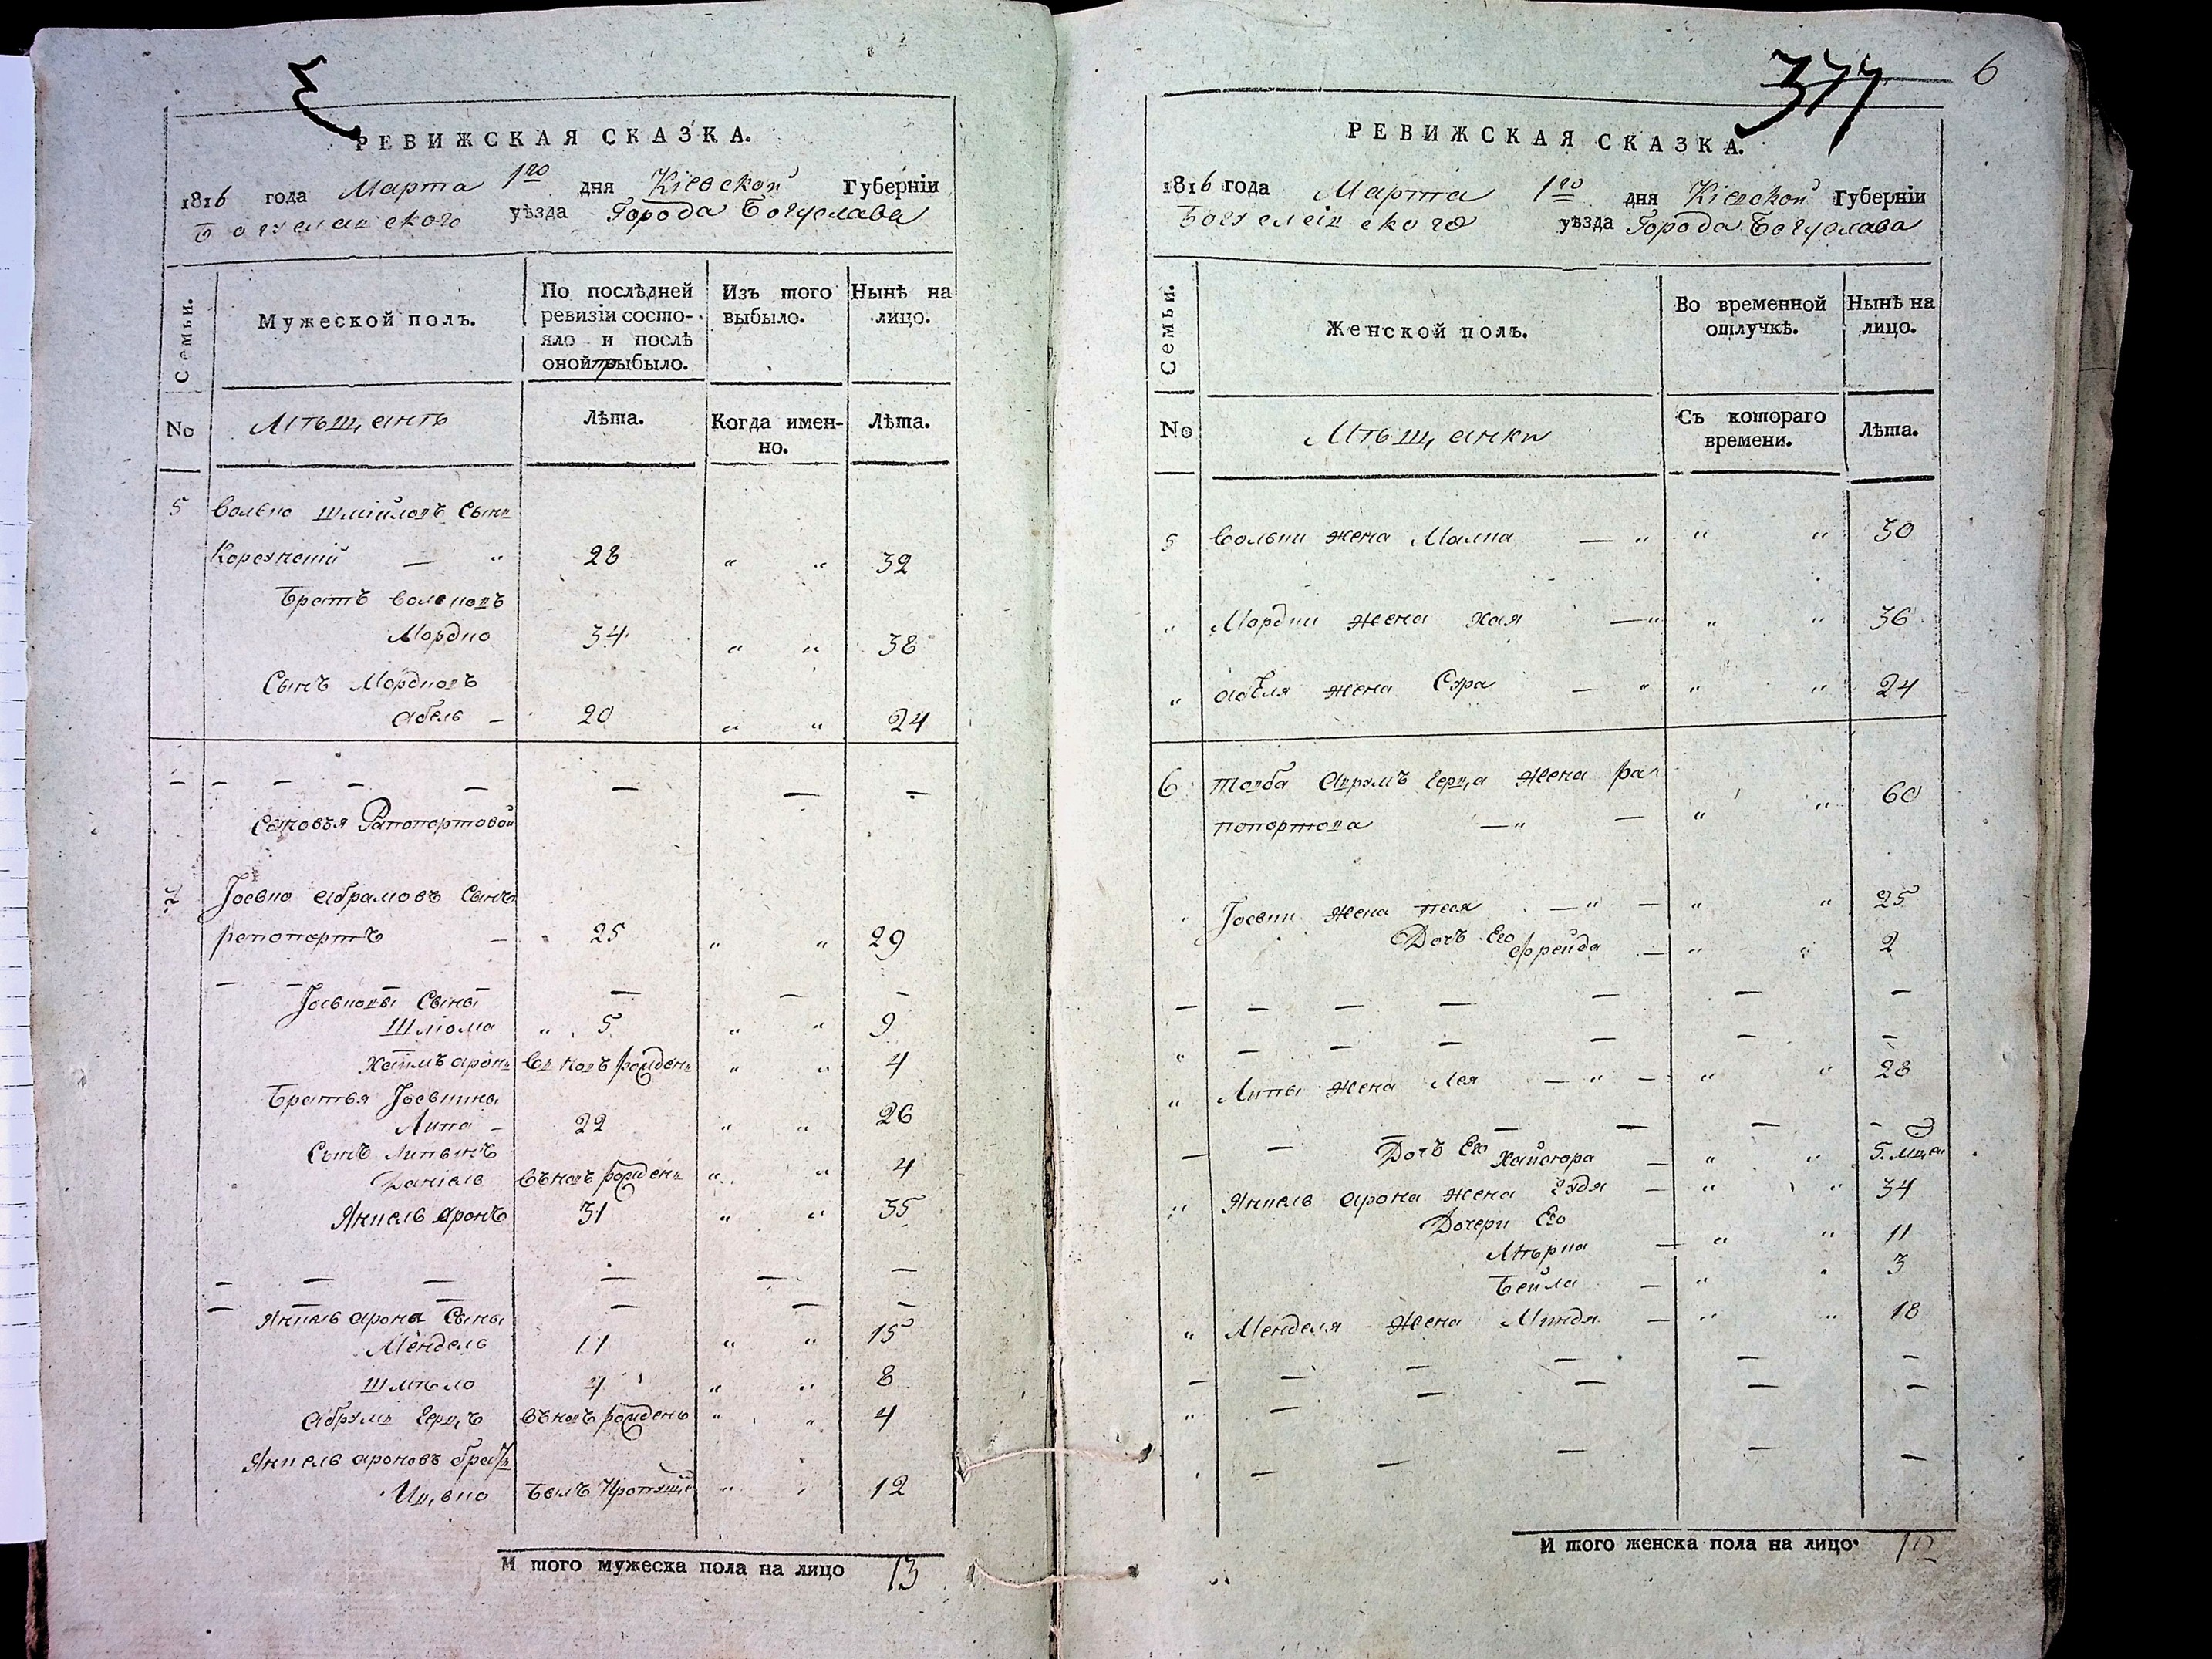 377
6
РЕВИЖСКАЯ СКАЗКА.
1816 года Марта 1го дня Кіевской Губерніи
Богуславского уѣзда Города Богуслава
Семьи.
Мужеской полъ.
По послѣдней ревизіи состо-
яло и послѣ
оной прибыло.
Изъ того выбыло.
Нынѣ на лицо.
No
Мѣщанъ
Лѣта.
Когда имен-
но.
Лѣта.
5 Волько Шмійловъ Сынъ
Корсунскій — " 28 " " 32
Братъ Вольковъ
Мордко 34 " " 38
Сынъ Мордковъ
Абель — 20 " " 24
Сыновья Рапопортовой
7 Іосько Абрамовъ Сынъ
рапопортъ — 25 " " 29
Іоськовы Сыны
Шліома " 5 " " 9
Хаимъ арон вновь рожден " " 4
Братья Іоськины
Липа — 22 " " 26
Сынъ Липынъ
Даніель вновь рожден " " 4
Янкель Аронъ 31 " " 35
Янкель арона Сыны
Мендель 11 " " 15
Шмѣло 4 " " 8
Абрумъ Герцъ вновь рожден " " 4
Янкель ароновъ братъ
Ицько былъ Пропущ " " 12
И того мужеска пола на лицо 13
РЕВИЖСКАЯ СКАЗКА.
1816 года Марта 1го дня Кіевской Губерніи
Богуславского уѣзда Города Богуслава
Семьи.
Женской полъ.
Во временной отлучкѣ.
Нынѣ на лицо.
No
Мѣщанки
Съ котораго времени.
Лѣта.
5 Вольки жена Малка — " " " 30
" Мордки жена Хая — " " " 36
" Абеля жена Сура — " " " 24
6 Товба Аврумъ Герца жена ра
попортова — " — " " 60
Іоськи жена Песя — " — " " 25
Дочь Его
Фрейда — " " 2
" Липы жена Лея — " — " " 28
Дочь Его
Хайсюра — " "
" Янкель арона жена Гудя — " " 34
Дочери Его
Мѣрка — " " 11
Бейла — " " 3
" Менделя жена Минда — " " 18
И того женска пола на лицо